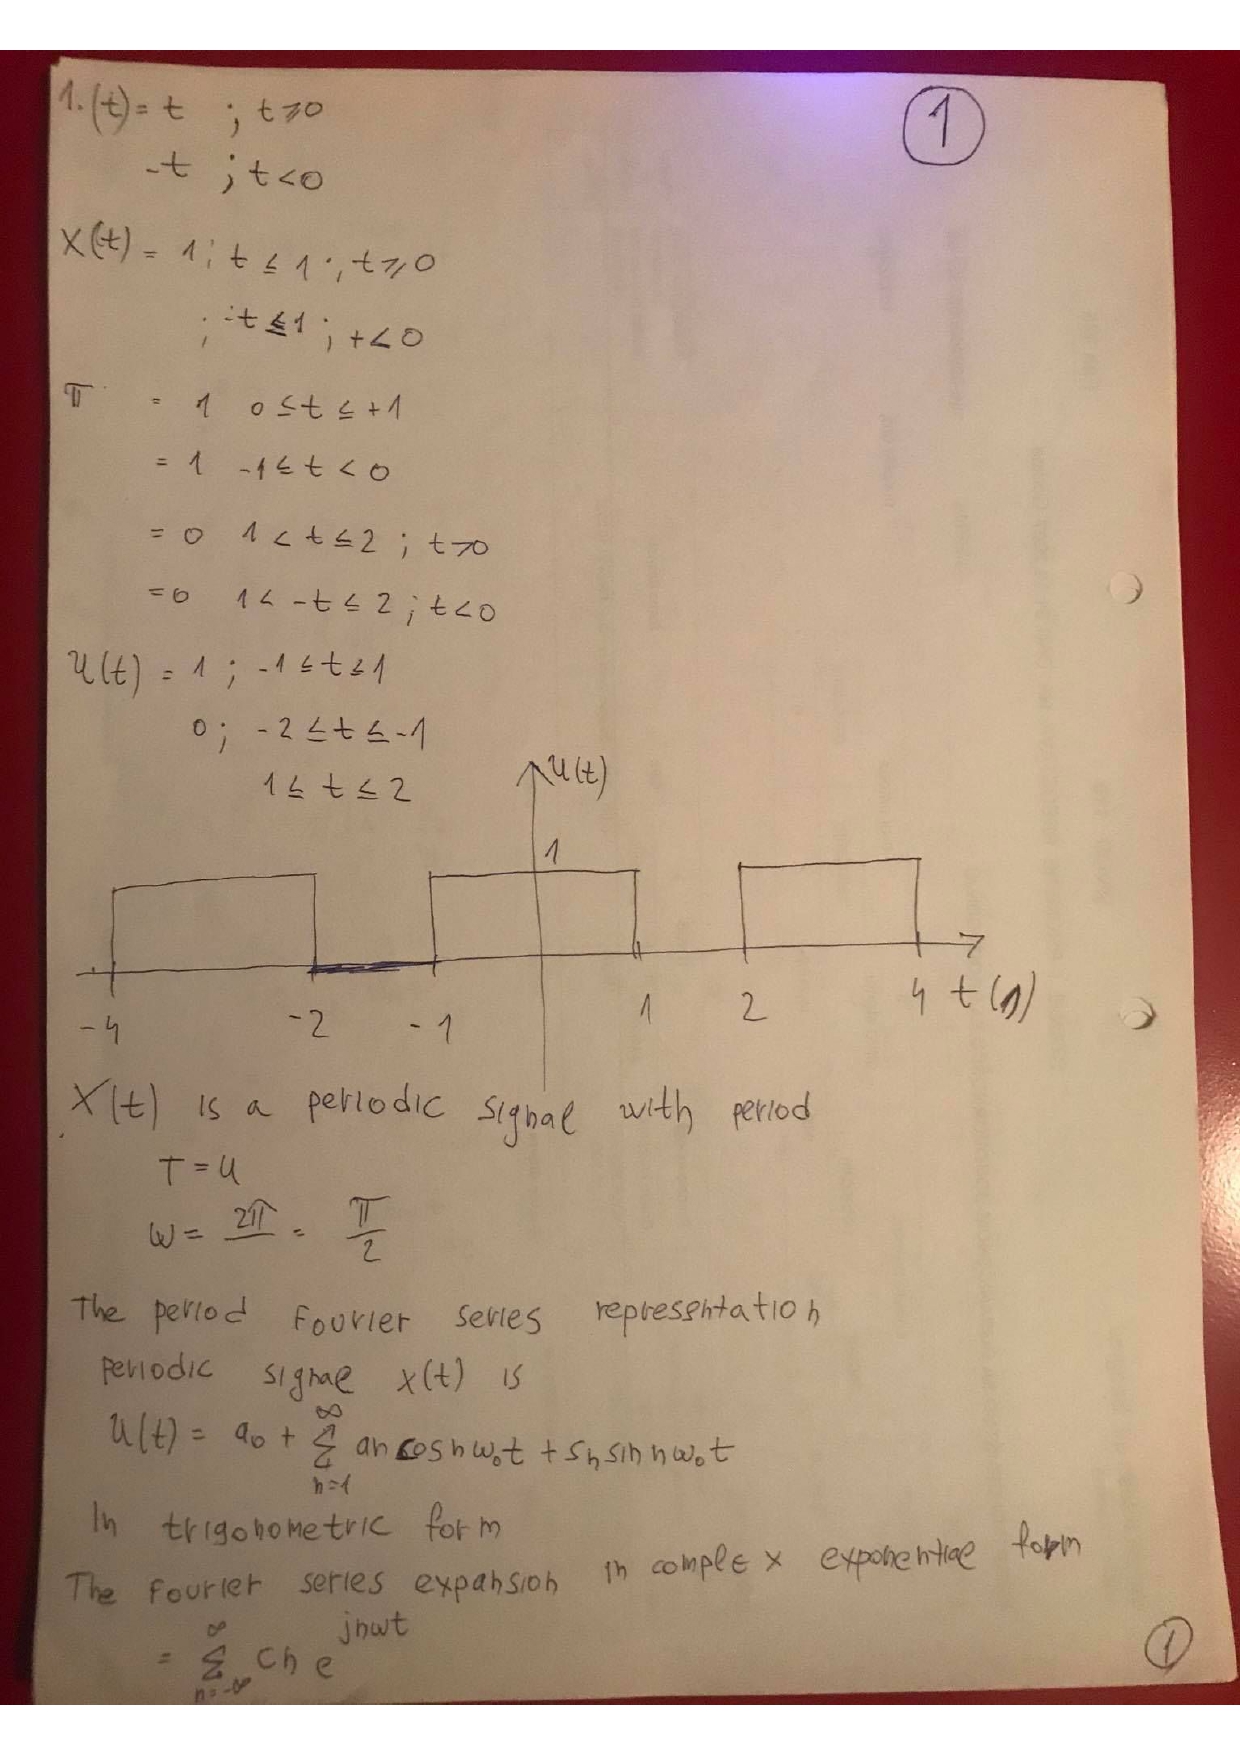 1. (t) = t ; t ≥ 0
1
-t ; t < 0
X(t) = 1 ; t ≤ 1 ; t ≥ 0
; -t ≤ 1 ; t < 0
π = 1 0 ≤ t ≤ +1
= 1 -1 ≤ t < 0
= 0 1 < t ≤ 2 ; t > 0
= 0 1 < -t ≤ 2 ; t < 0
U(t) = 1 ; -1 ≤ t ≤ 1
0 ; -2 ≤ t ≤ -1
1 ≤ t ≤ 2
U(t)
1
-4 -2 -1 1 2 4 t (1)
X(t) is a periodic signal with period
T = 4
ω = 2π/ = π/2
The period Fourier series represshtation
periodic signal x(t) is
U(t) = a0 + ∑_{n=1}^{∞} an cos nω0t + sn sin nω0t
In trigonometric form
The Fourier series expansion in complex exponential form
= ∑_{n=-∞}^{∞} Cn e^{jnωt}
1